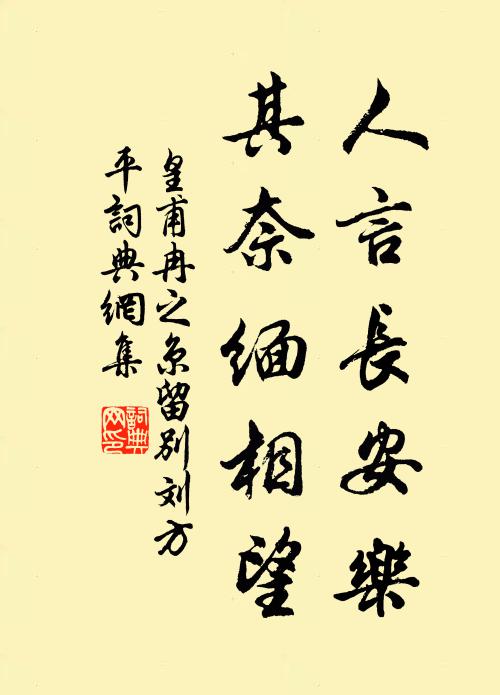 人言長安樂
其奈緬相望
皇甫冉之京留别刘方
平詞典網集
詞典
网印